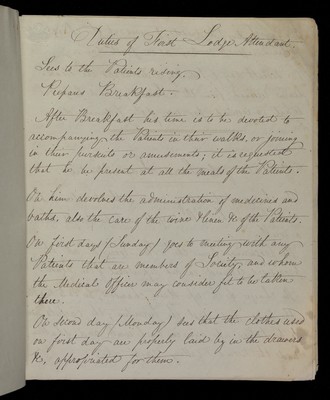 Duties of First Lodge Attendant.
Sees to the Patients rising.
Prepares Breakfast.
After Breakfast his time is to be devoted to
accompanying the Patients in their walks, or joining
in their pursuits or amusements; it is requested
that he be present at all the meals of the Patients.
On him devolves the administration of medicines and
baths, also the care of the wine &c of the Patients.
On first days (Sunday) goes to meeting with any
Patients that are members of Society, and whom
the Medical Officer may consider fit to be taken
there.
On second day (Monday) sees that the clothes used
on first day are properly laid by in the drawers
&c. appropriated for them.